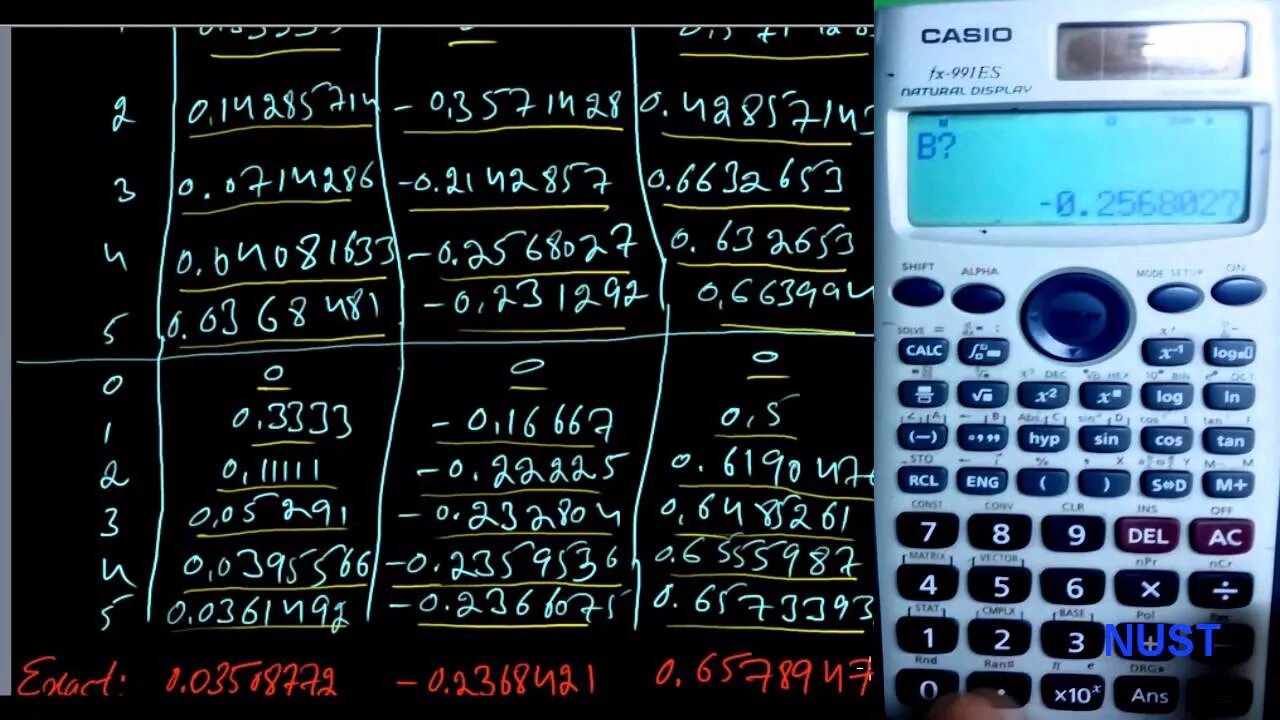 2 0.14285714 -0.3571428 0.42857143
3 0.0714286 -0.2142857 0.6632653
4 0.04081633 -0.2568027 0.632653
5 0.0368481 -0.231292 0.663994
0 0 0 0
1 0.3333 -0.16667 0.5
2 0.11111 -0.22225 0.619047
3 0.05291 -0.232804 0.6485261
4 0.0395566 -0.2359536 0.6555987
5 0.0361492 -0.2366075 0.6573393
Exact: 0.03508772 -0.2368421 0.6578947
CASIO
fx-991ES
NATURAL DISPLAY
B?
-0.2568027
SHIFT ALPHA MODE SETUP ON
SOLVE =
CALC x⁻¹ log
x³ DEC HEX BIN
x² log ln
(-) hyp sin cos tan
STO
RCL ENG ( ) S⇔D M+
CONST CONV CLR INS OFF
7 8 9 DEL AC
MATRIX VECTOR nPr nCr
4 5 6 × ÷
STAT CMPLX BASE Pol
1 2 3 +
NUST
Rnd Ran# π e DRG▸
0 . ×10ˣ Ans